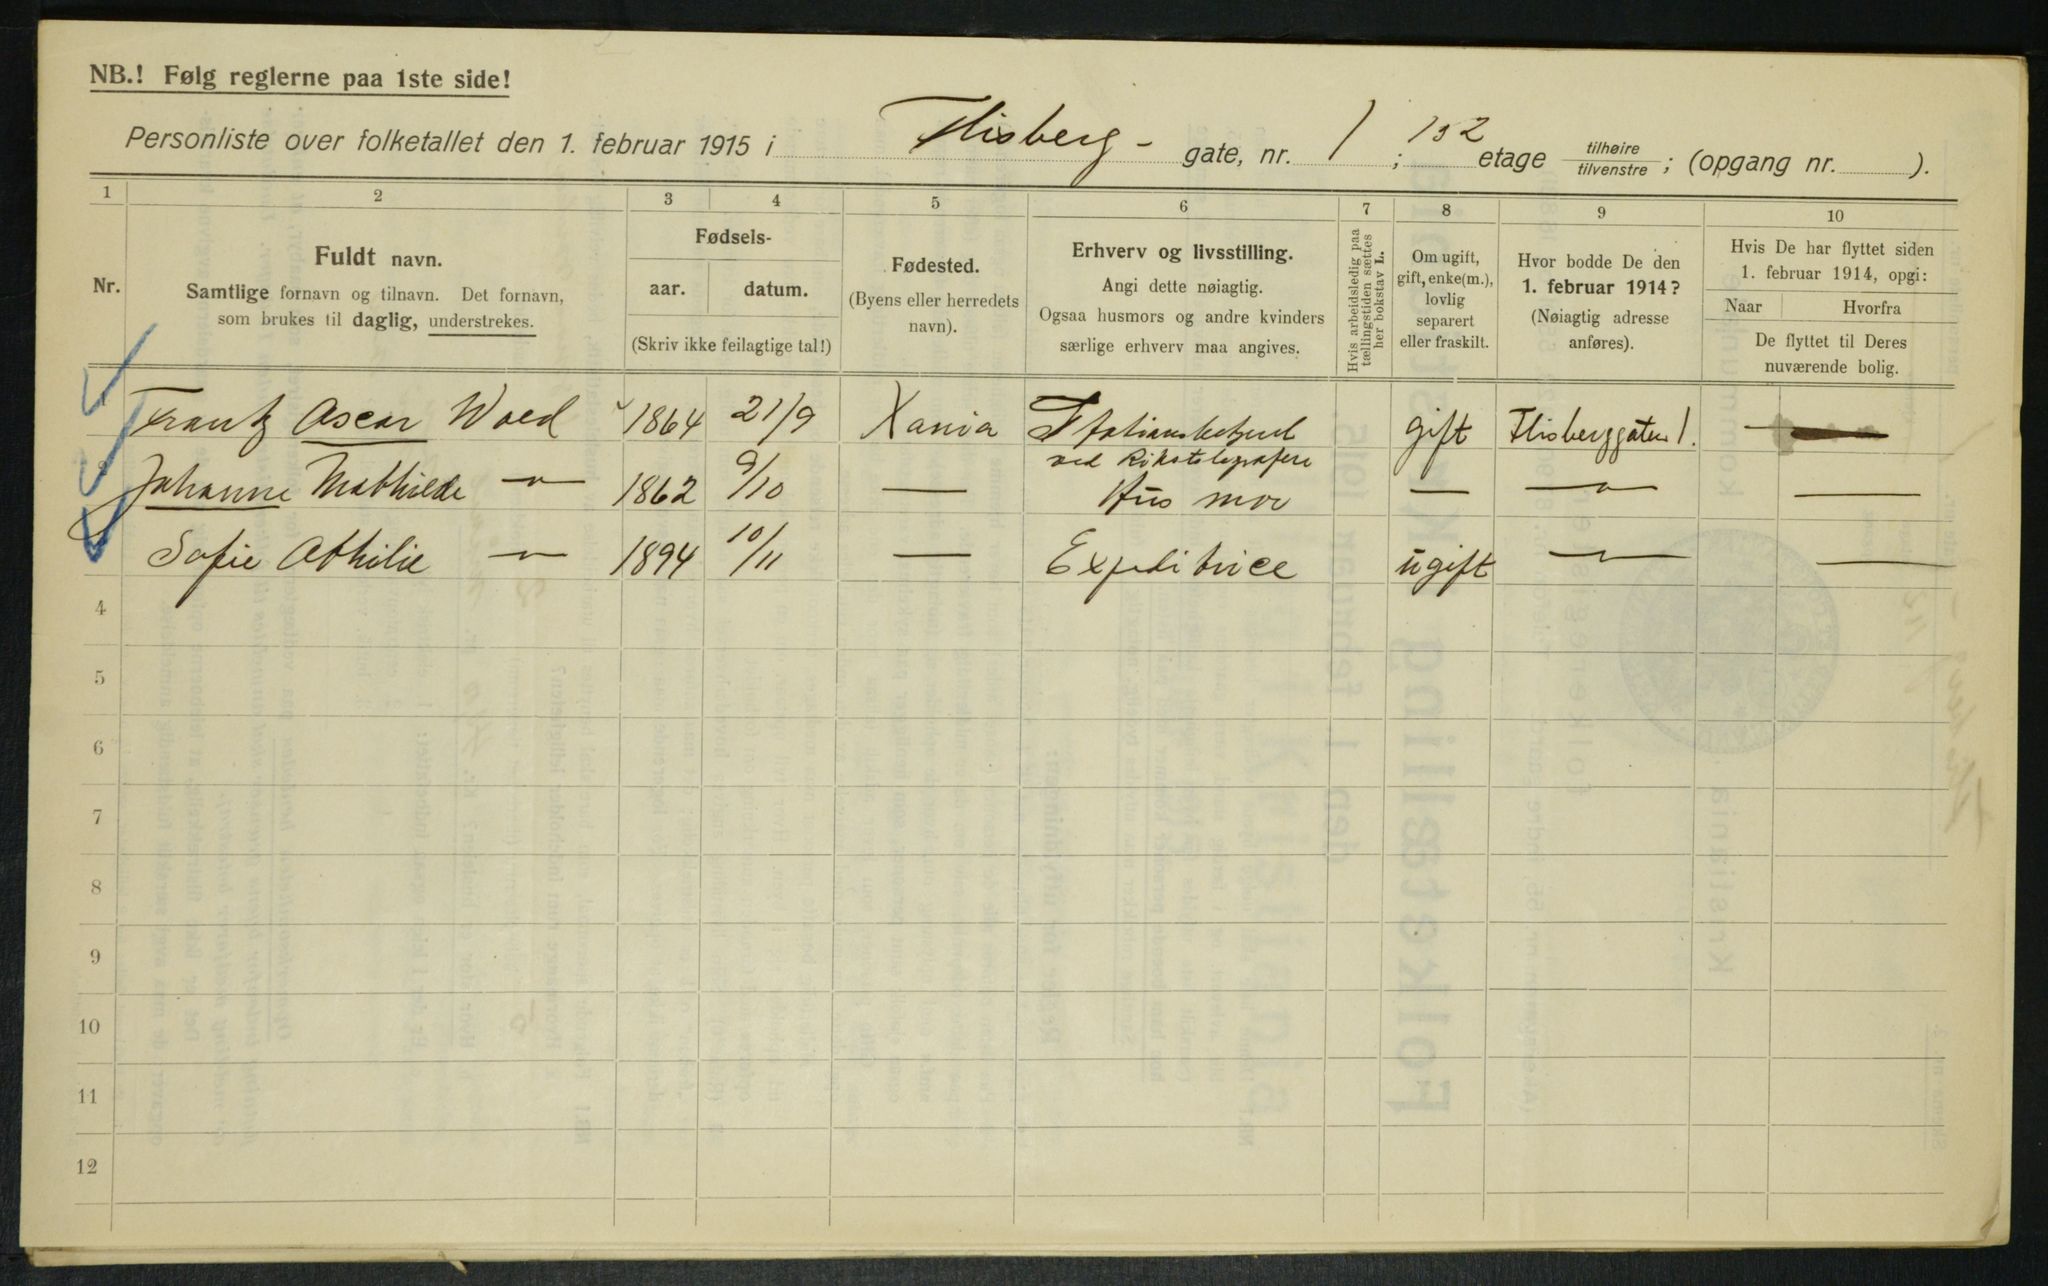 NB.! Følg reglerne paa 1ste side!
Personliste over folketallet den 1. februar 1915 i Flisberg- gate, nr. 1 ; 1 3 2 etage tilhøire/tilvenstre ; (opgang nr. ).
1 2 3 4 5 6 7 8 9 10
Nr.
Fuldt navn.
Samtlige fornavn og tilnavn. Det fornavn,
som brukes til daglig, understrekes.
Fødsels-
aar. datum.
(Skriv ikke feilagtige tal!)
Fødested.
(Byens eller herredets
navn).
Erhverv og livsstilling.
Angi dette nøiagtig.
Ogsaa husmors og andre kvinders
særlige erhverv maa angives.
Hvis arbeidsledig paa
tællingstiden sættes
her bokstav L.
Om ugift,
gift, enke(m.),
lovlig
separert
eller fraskilt.
Hvor bodde De den
1. februar 1914?
(Nøiagtig adresse
anføres).
Hvis De har flyttet siden
1. februar 1914, opgi:
Naar Hvorfra
De flyttet til Deres
nuværende bolig.
Frantz Oscar Wold 1864 21/9 Xania gift Flisberggaten 1. —
ved
2 Johanne Mathilde —"— 1862 9/10 — Husmor — —"— —
Sofie Othilie —"— 1894 10/11 — Expeditrice ugift —"— —
4
5
6
7
8
9
10
11
12